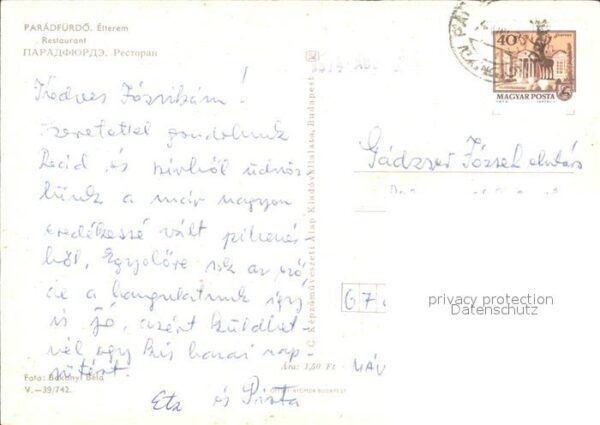 PARÁDFÜRDŐ. Étterem
Restaurant
ПАРАДФЮРДЭ. Ресторан
Kedves Józsikám!
Szeretettel gondolunk
Reád és szívből üdvöz
lünk a már nagyon
esedékessé vált pihenés
ből. Egyelőre sok az eső
de a hangulatunk így
is jó, azért küldhet
nél egy kis hazai nap
sütést.
Eta és Pista
Foto: Bakonyi Béla
V.—39/742.
C. Képzőművészeti Alap Kiadóvállalata, Budapest
Ára: 1,50 Ft
40 f
MAGYAR POSTA
József elvtárs
67
MÁV
privacy protection
Datenschutz